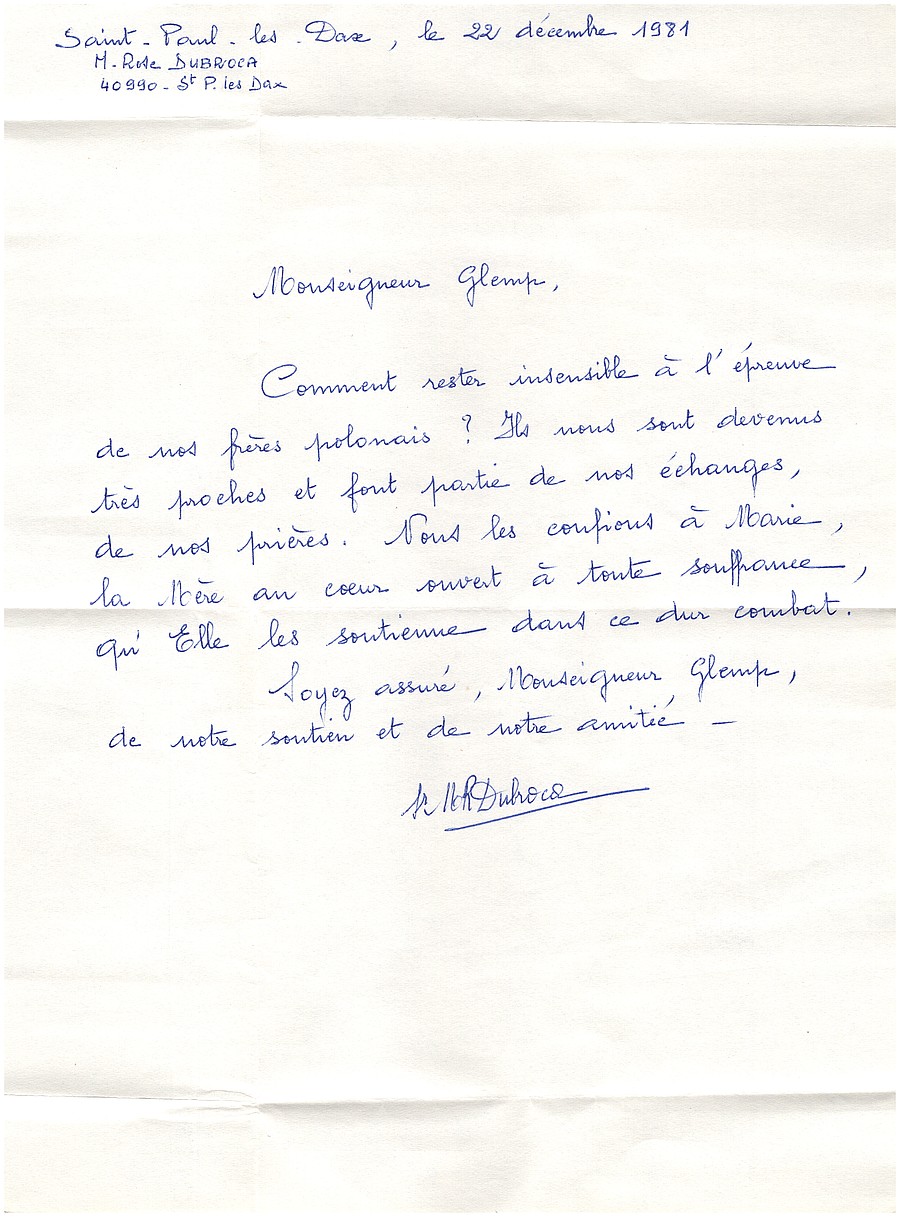 Saint-Paul-les-Dax, le 22 décembre 1981
M-Rose DUBROCA
40990 - St P. les Dax
Monseigneur Glemp,
Comment rester insensible à l'épreuve
de nos frères polonais ? Ils nous sont devenus
très proches et font partie de nos échanges,
de nos prières. Nous les confions à Marie,
la Mère au coeur ouvert à toute souffrance,
qu'Elle les soutienne dans ce dur combat.
Soyez assuré, Monseigneur Glemp,
de notre soutien et de notre amitié -
Sr MR Dubroca